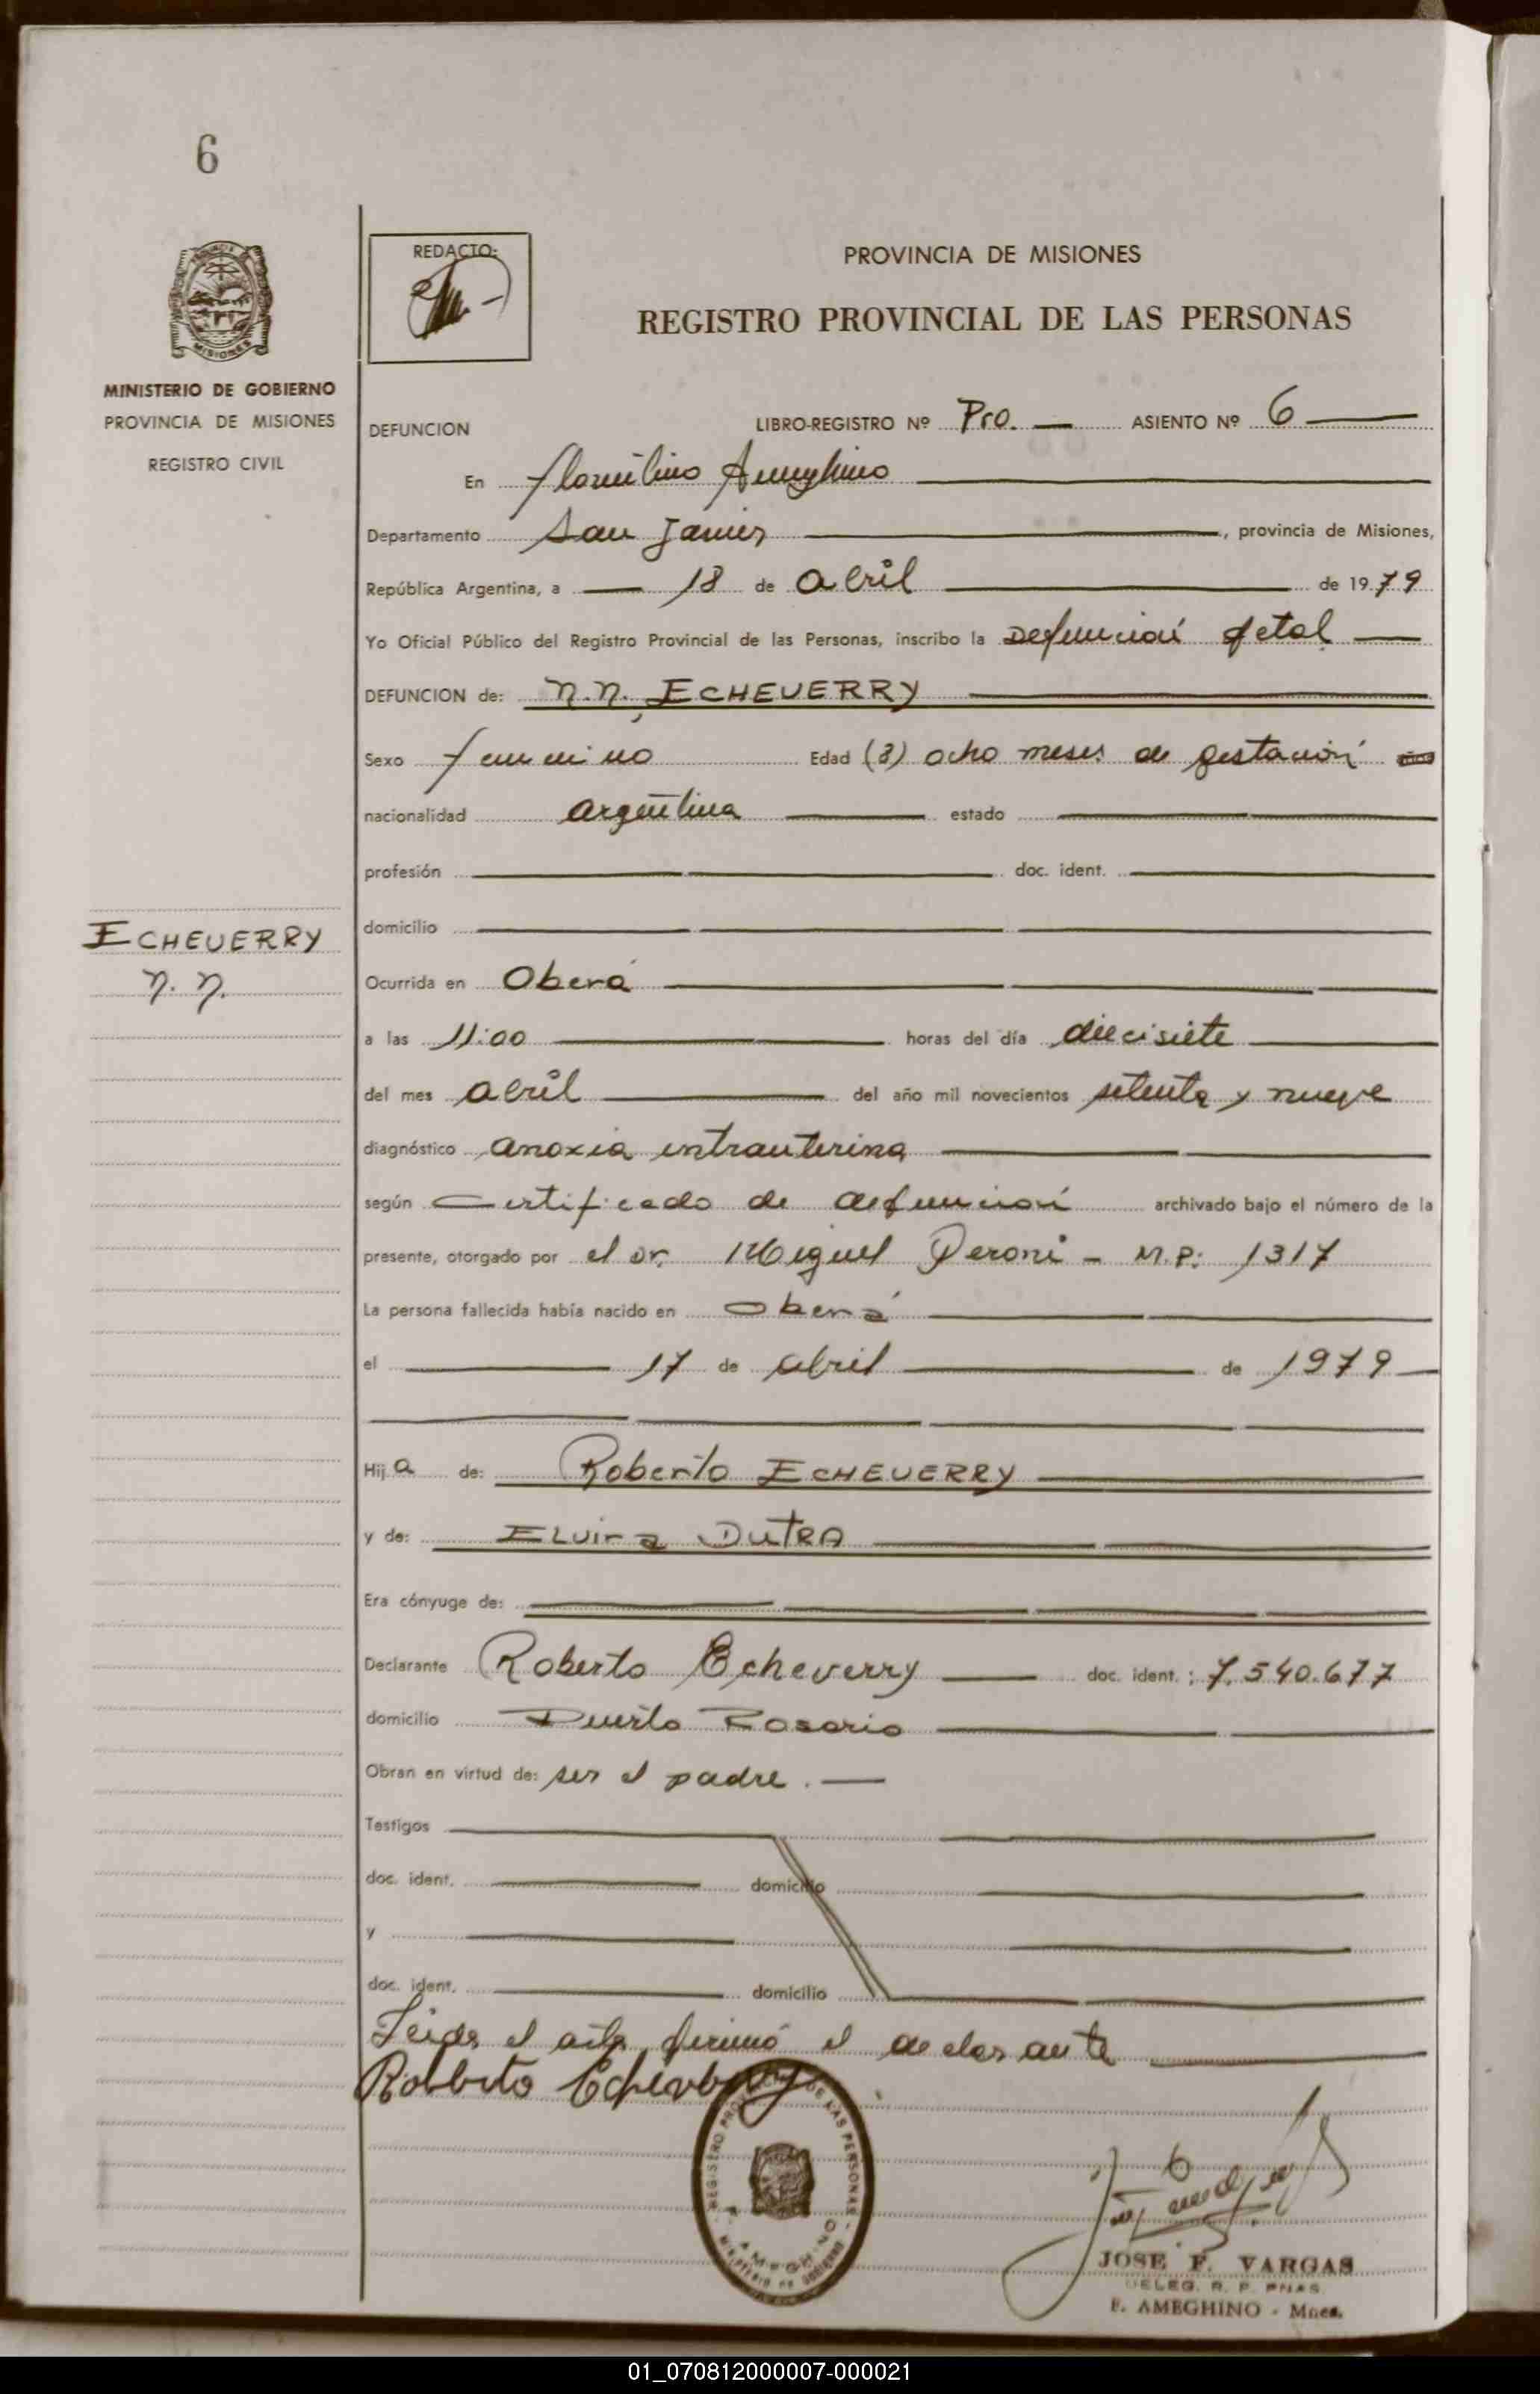 6
REDACTO:
PROVINCIA DE MISIONES
REGISTRO PROVINCIAL DE LAS PERSONAS
MISIONES
MINISTERIO DE GOBIERNO
PROVINCIA DE MISIONES
REGISTRO CIVIL
DEFUNCION LIBRO-REGISTRO Nº Pro. ASIENTO Nº 6
En Florentino Ameghino
Departamento San Javier, provincia de Misiones,
República Argentina, a 18 de abril de 1979
Yo Oficial Público del Registro Provincial de las Personas, inscribo la Defunción fetal
DEFUNCION de: N.N. ECHEVERRY
Sexo femenino Edad (8) ocho meses de gestación
nacionalidad argentina estado
profesión doc. ident.
ECHEVERRY
N. N.
domicilio
Ocurrida en Oberá
a las 11:00 horas del día diecisiete
del mes abril del año mil novecientos setenta y nueve
diagnóstico anoxia intrauterina
según certificado de defunción archivado bajo el número de la
presente, otorgado por el Dr. Miguel Peroni - M.P: 1317
La persona fallecida había nacido en Oberá
el 17 de abril de 1979
Hija de: Roberto ECHEVERRY
y de: ELVIRA DUTRA
Era cónyuge de:
Declarante Roberto Echeverry doc. ident.: 7.540.677
domicilio Puerto Rosario
Obran en virtud de: ser el padre.
Testigos
doc. ident. domicilio
y
doc. ident. domicilio
Leida el acta, firmó el declarante
REGISTRO PROVINCIAL DE LAS PERSONAS
F. AMEGHINO
MINISTERIO DE GOBIERNO
JOSE F. VARGAS
DELEG. R. P. PNAS.
F. AMEGHINO - Mnes.
01_070812000007-000021